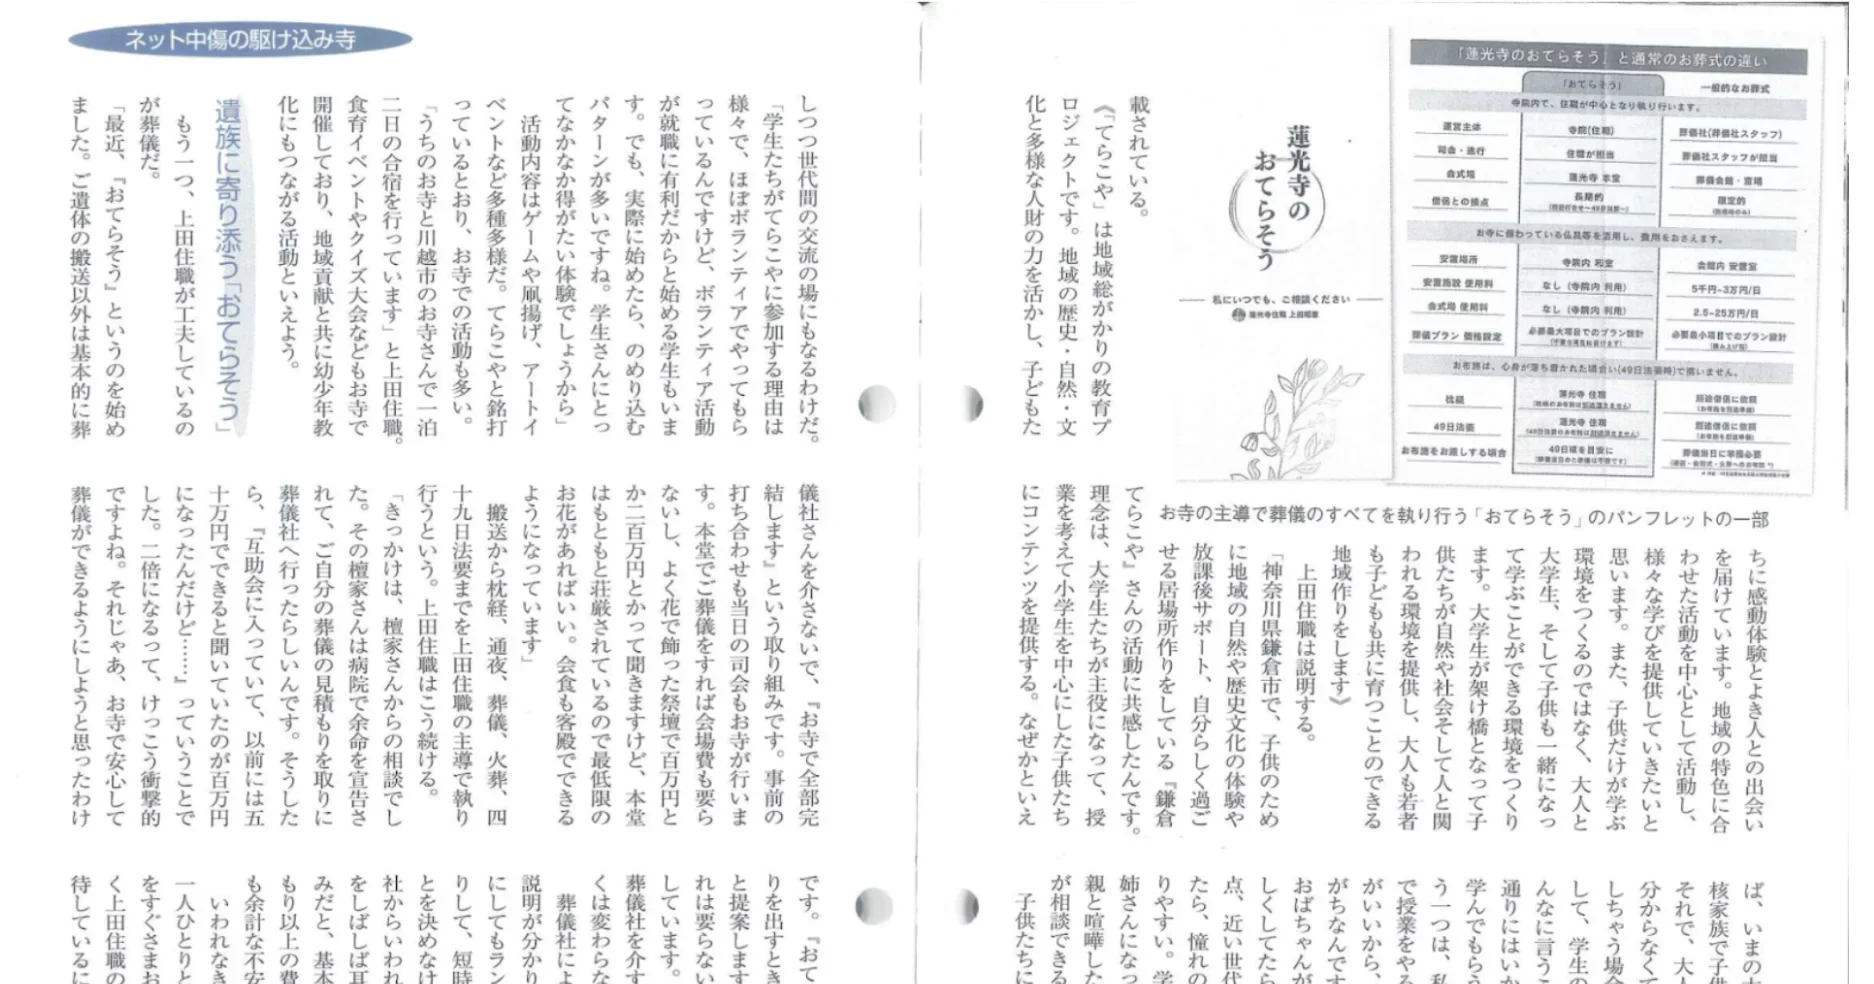 「蓮光寺のおてらそう」と通常のお葬式の違い
「おてらそう」 一般的なお葬式
寺院内で、住職が中心となり執り行います。
運営主体 寺院(住職) 葬儀社(葬儀社スタッフ)
司会・進行 住職が担当 葬儀社スタッフが担当
会式場 蓮光寺 本堂 葬儀会館・斎場
僧侶との接点 長期的 限定的
お寺に備わっている仏具等を活用し、費用をおさえます。
安置場所 寺院内 和室 会館内 安置室
安置施設 使用料 なし(寺院内 利用) 5千円~3万円/日
会式場 使用料 なし(寺院内 利用) 2.5-25万円/日
葬儀プラン 価格設定 必要最大項目でのプラン設計 必要最小項目でのプラン設計
お布施は、心身が落ち着かれた頃合い(49日法要時)で構いません。
枕経 蓮光寺 住職
49日法要 蓮光寺 住職
お布施をお渡しする頃合 49日頃を目安に 葬儀当日に準備必要
蓮光寺の
おてらそう
私にいつでも、ご相談ください
蓮光寺住職 上田昭憲
お寺の主導で葬儀のすべてを執り行う「おてらそう」のパンフレットの一部
載されている。
《「てらこや」は地域総がかりの教育プ
ロジェクトです。地域の歴史・自然・文
化と多様な人財の力を活かし、子どもた
ちに感動体験とよき人との出会い
を届けています。地域の特色に合
わせた活動を中心として活動し、
様々な学びを提供していきたいと
思います。また、子供だけが学ぶ
環境をつくるのではなく、大人と
大学生、そして子供も一緒になっ
て学ぶことができる環境をつくり
ます。大学生が架け橋となって子
供たちが自然や社会そして人と関
われる環境を提供し、大人も若者
も子どもも共に育つことのできる
地域作りをします》
上田住職は説明する。
「神奈川県鎌倉市で、子供のため
に地域の自然や歴史文化の体験や
放課後サポート、自分らしく過ご
せる居場所作りをしている『鎌倉
てらこや』さんの活動に共感したんです。
理念は、大学生たちが主役になって、授
業を考えて小学生を中心にした子供たち
にコンテンツを提供する。なぜかといえ
ば、いまの
核家族で子
それで、大人
分からなくて
しちゃう場合
して、学生の
んなに言うこ
通りにはいか
学んでもらう
う一つは、私
で授業をやる
がいいから、
がちなんです
おばちゃんが
しくしてたら
点、近い世代
たら、憧れの
りやすい。学
姉さんになっ
親と喧嘩した
が相談できる
子供たちに
ネット中傷の駆け込み寺
しつつ世代間の交流の場にもなるわけだ。
「学生たちがてらこやに参加する理由は
様々で、ほぼボランティアでやってもら
っているんですけど、ボランティア活動
が就職に有利だからと始める学生もいま
す。でも、実際に始めたら、のめり込む
パターンが多いですね。学生さんにとっ
てなかなか得がたい体験でしょうから」
活動内容はゲームや凧揚げ、アートイ
ベントなど多種多様だ。てらこやと銘打
っているとおり、お寺での活動も多い。
「うちのお寺と川越市のお寺さんで一泊
二日の合宿を行っています」と上田住職。
食育イベントやクイズ大会などもお寺で
開催しており、地域貢献と共に幼少年教
化にもつながる活動といえよう。
遺族に寄り添う「おてらそう」
もう一つ、上田住職が工夫しているの
が葬儀だ。
「最近、『おてらそう』というのを始め
ました。ご遺体の搬送以外は基本的に葬
儀社さんを介さないで、『お寺で全部完
結します』という取り組みです。事前の
打ち合わせも当日の司会もお寺が行いま
す。本堂でご葬儀をすれば会場費も要ら
ないし、よく花で飾った祭壇で百万円と
か二百万円とかって聞きますけど、本堂
はもともと荘厳されているので最低限の
お花があればいい。会食も客殿でできる
ようになっています」
搬送から枕経、通夜、葬儀、火葬、四
十九日法要までを上田住職の主導で執り
行うという。上田住職はこう続ける。
「きっかけは、檀家さんからの相談でし
た。その檀家さんは病院で余命を宣告さ
れて、ご自分の葬儀の見積もりを取りに
葬儀社へ行ったらしいんです。そうした
ら、『互助会に入っていて、以前には五
十万円でできると聞いていたのが百万円
になったんだけど……』っていうことで
した。二倍になるって、けっこう衝撃的
ですよね。それじゃあ、お寺で安心して
葬儀ができるようにしようと思ったわけ
です。『おて
りを出すとき
と提案します
れは要らない
しています。
葬儀社を介す
くは変わらな
葬儀社によ
説明が分かり
にしてもラン
りして、短時
とを決めなけ
社からいわれ
をしばしば耳
みだと、基本
もり以上の費
も余計な不安
いわれなき
一人ひとりと
をすぐさまお
く上田住職の
待しているに